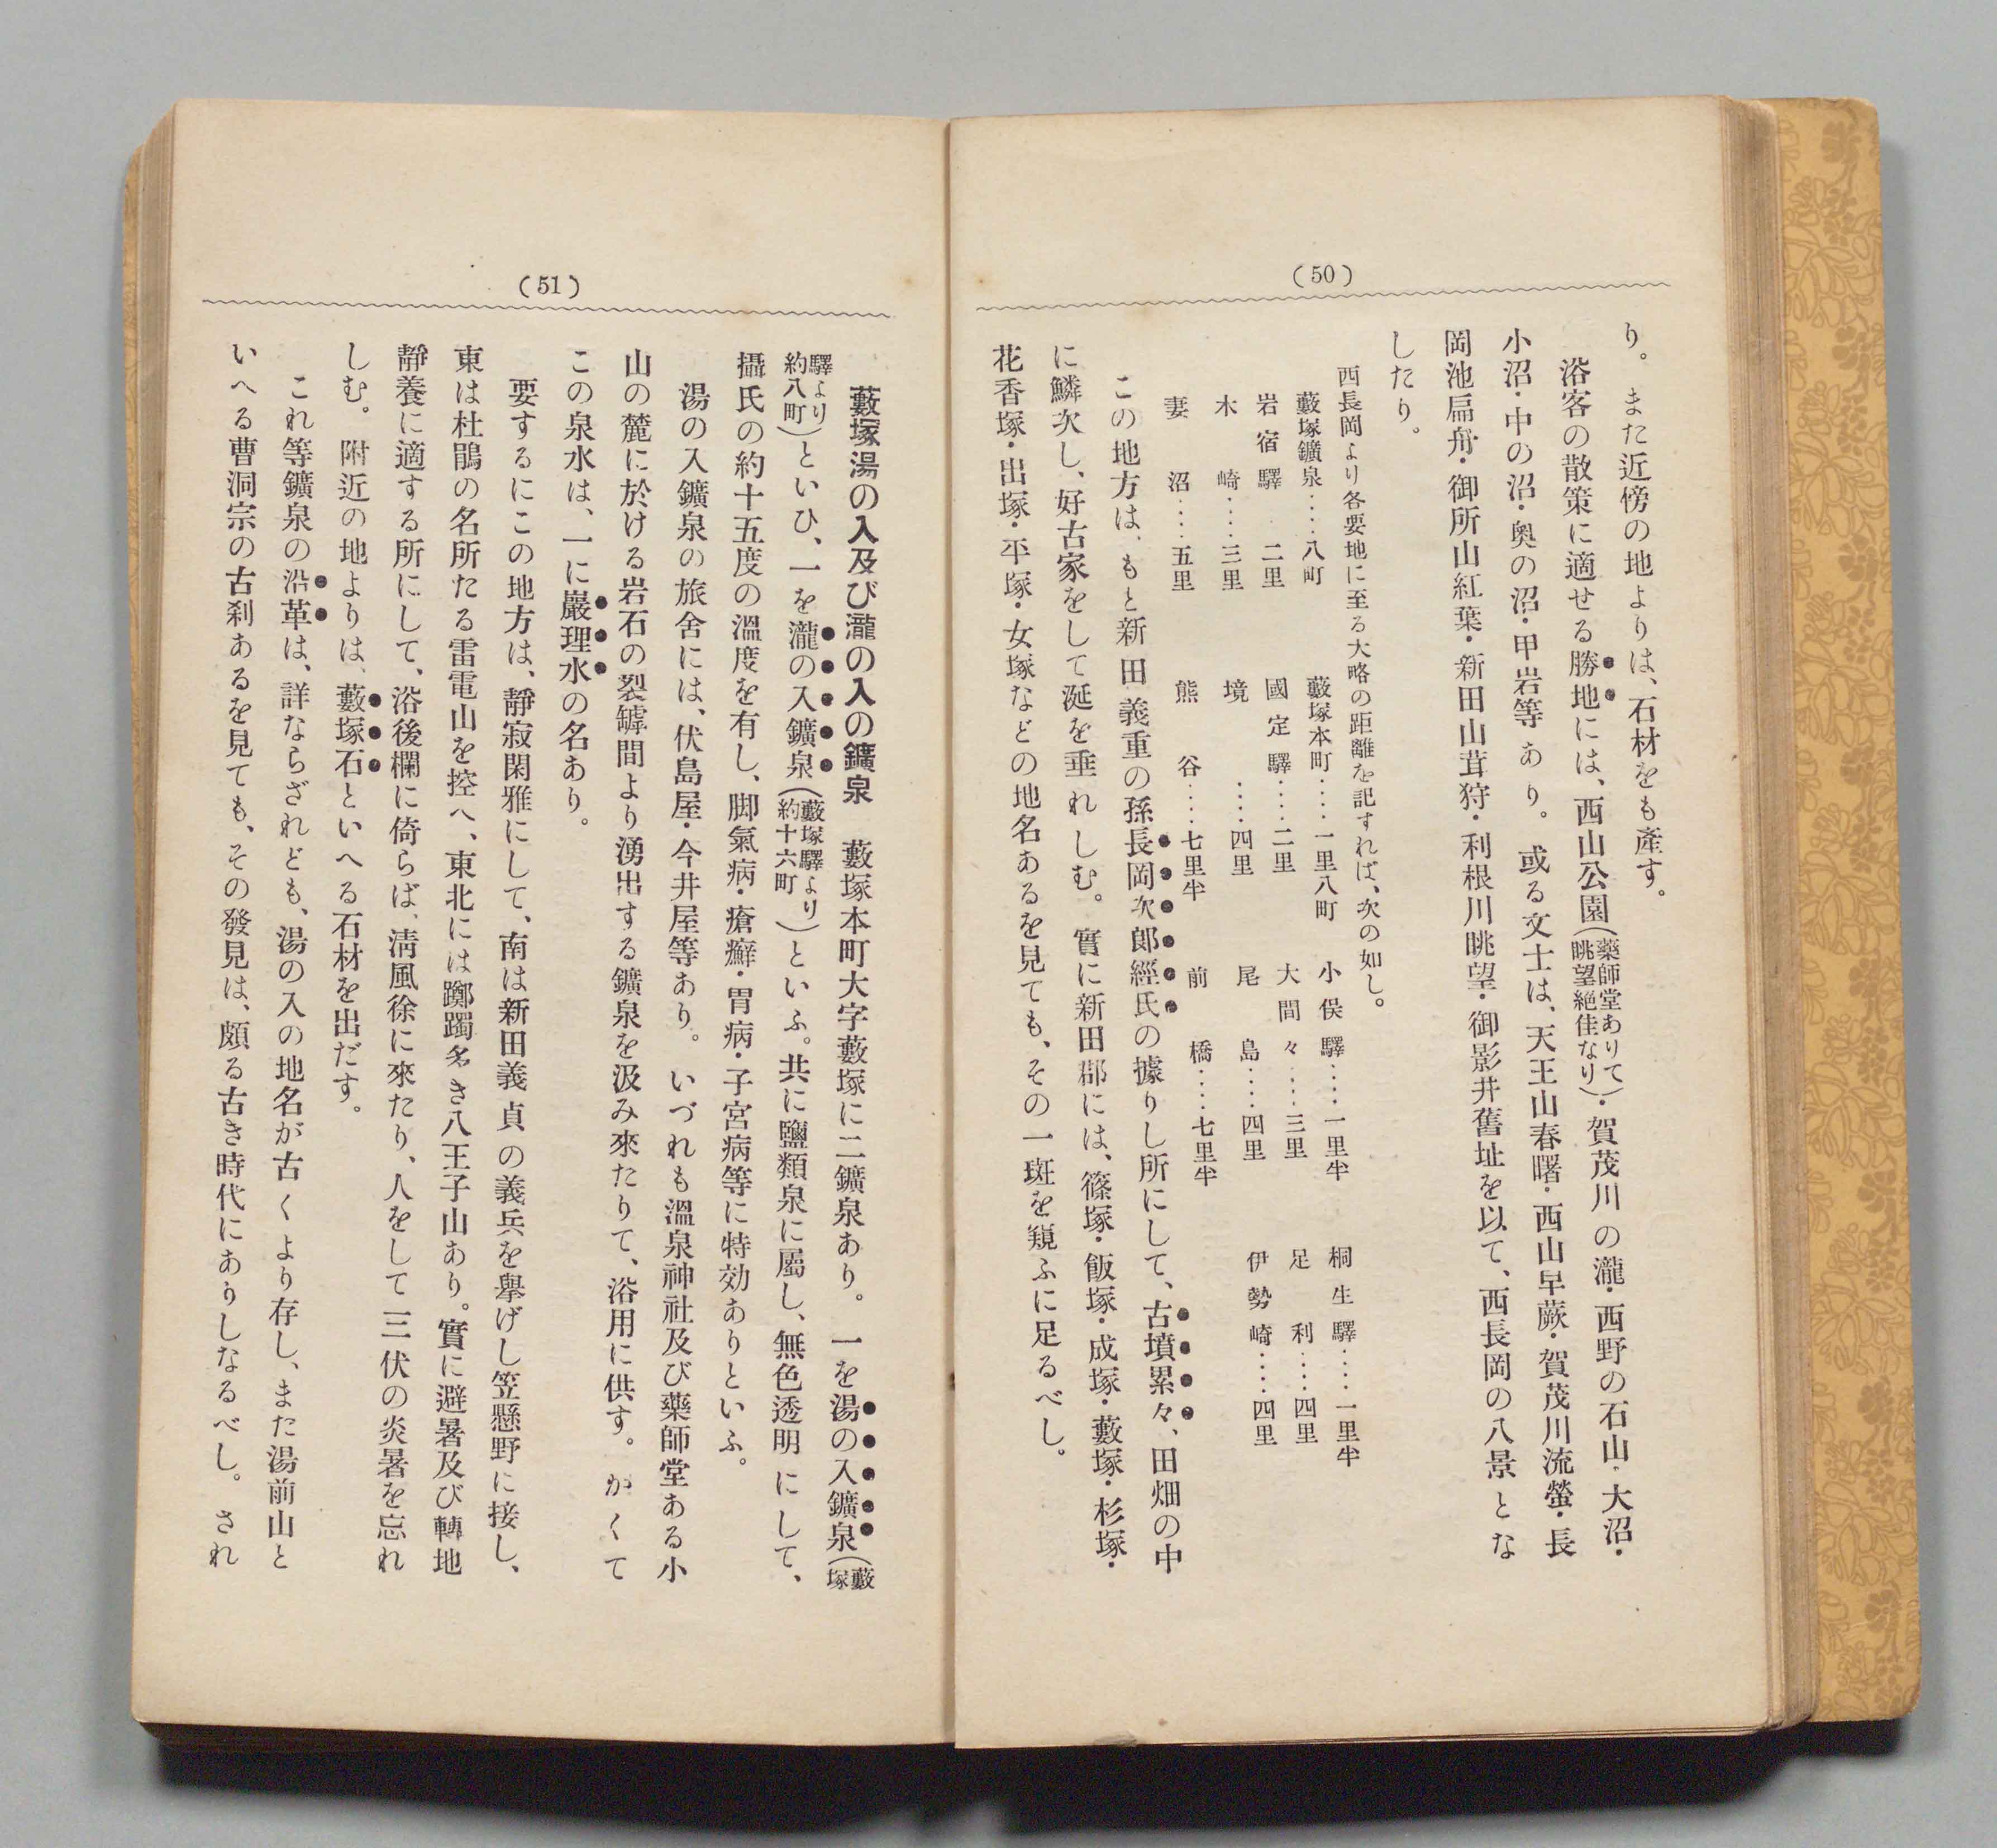 (50)
り。また近傍の地よりは、石材をも產す。
浴客の散策に適せる勝地には、西山公園(藥師堂ありて眺望絶佳なり)・賀茂川の瀧・西野の石山・大沼・
小沼・中の沼・奧の沼・甲岩等あり。或る文士は、天王山春曙・西山早蕨・賀茂川流螢・長
岡池扁舟・御所山紅葉・新田山茸狩・利根川眺望・御影井舊址を以て、西長岡の八景とな
したり。
西長岡より各要地に至る大略の距離を記すれば、次の如し。
藪塚鑛泉‥‥八町 藪塚本町‥‥一里八町 小俣驛‥‥一里半 桐生驛‥‥一里半
岩宿驛 二里 國定驛‥‥二里 大間々‥‥三里 足利‥‥四里
木崎‥‥三里 境‥‥四里 尾島‥‥四里 伊勢崎‥‥四里
妻沼‥‥五里 熊谷‥‥七里半 前橋‥‥七里半
この地方は、もと新田義重の孫長岡次郎經氏の據りし所にして、古墳累々、田畑の中
に鱗次し、好古家をして涎を垂れしむ。實に新田郡には、篠塚・飯塚・成塚・藪塚・杉塚・
花香塚・出塚・平塚・女塚などの地名あるを見ても、その一斑を窺ふに足るべし。
(51)
藪塚湯の入及び瀧の入の鑛泉 藪塚本町大字藪塚に二鑛泉あり。一を湯の入鑛泉(藪塚
驛より約八町)といひ、一を瀧の入鑛泉(藪塚驛より約十六町)といふ。共に鹽類泉に屬し、無色透明にして、
攝氏の約十五度の溫度を有し、脚氣病・瘡癬・胃病・子宮病等に特効ありといふ。
湯の入鑛泉の旅舍には、伏島屋・今井屋等あり。いづれも溫泉神社及び藥師堂ある小
山の麓に於ける岩石の裂罅間より湧出する鑛泉を汲み來たりて、浴用に供す。かくて
この泉水は、一に巖理水の名あり。
要するにこの地方は、靜寂閑雅にして、南は新田義貞の義兵を擧げし笠懸野に接し、
東は杜鵑の名所たる雷電山を控へ、東北には躑躅多き八王子山あり。實に避暑及び轉地
靜養に適する所にして、浴後欄に倚らば、淸風徐に來たり、人をして三伏の炎暑を忘れ
しむ。附近の地よりは、藪塚石といへる石材を出だす。
これ等鑛泉の沿革は、詳ならざれども、湯の入の地名が古くより存し、また湯前山と
いへる曹洞宗の古刹あるを見ても、その發見は、頗る古き時代にありしなるべし。され